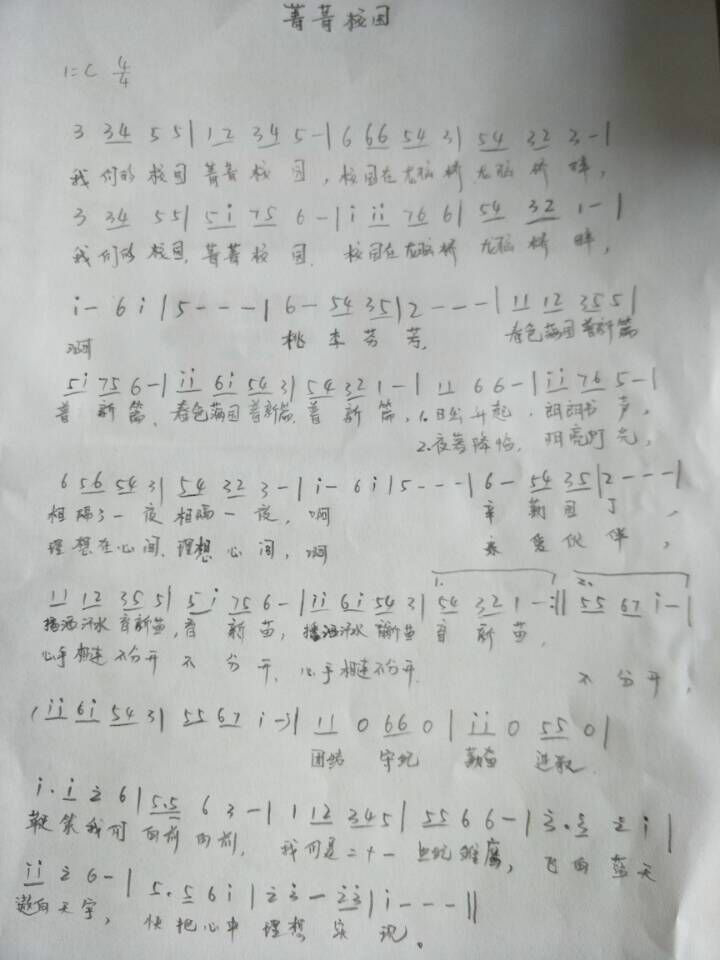 菁菁校园
1=C 4/4
3 34 5 5 | 12 34 5 - | 6 66 54 3 | 54 32 3 - |
我们的校园菁菁校园，校园在龙脑桥 龙脑桥畔，
3 34 5 5 | 5i 75 6 - | i ii 76 6 | 54 32 1 - |
我们的校园，菁菁校园，校园在龙脑桥 龙脑桥畔，
i - 6 i | 5 - - - | 6 - 54 35 | 2 - - - | 11 12 35 5 |
啊 桃李芬芳， 春色满园普新篇
5i 75 6 - | ii 6i 54 3 | 54 32 1 - | 11 6 6 - | ii 76 5 - |
普新篇，春色满园普新篇，普新篇，1.日出升起，朗朗书声，
2.夜幕降临，明亮灯光，
6 56 54 3 | 54 32 3 - | i - 6 i | 5 - - - | 6 - 54 35 | 2 - - - |
相隔了一夜 相隔一夜，啊 辛勤园丁，
理想在心间，理想心间，啊 亲爱伙伴，
11 12 35 5 | 5i 75 6 - | ii 6i 54 3 | 1. 54 32 1 - :|| 2. 55 67 i - |
播洒汗水育新苗，育新苗，播洒汗水育新苗 育新苗，
心手相连不分开 不分开，心手相连不分开， 不分开，
( ii 6i 54 3 | 55 67 i - ) | 11 0 66 0 | ii 0 55 0 |
团结 守纪 勤奋 进取
i. i 2 6 | 5.5 6 3 - | 1 12 34 5 | 55 6 6 - | 3. 3 2 i |
鞭策我们向前向前， 我们是二十一世纪雏鹰， 飞向蓝天
ii 2 6 - | 5. 5 6 i | 2 3 - 23 | i - - - ||
遨向天宇， 快把心中理想实现。